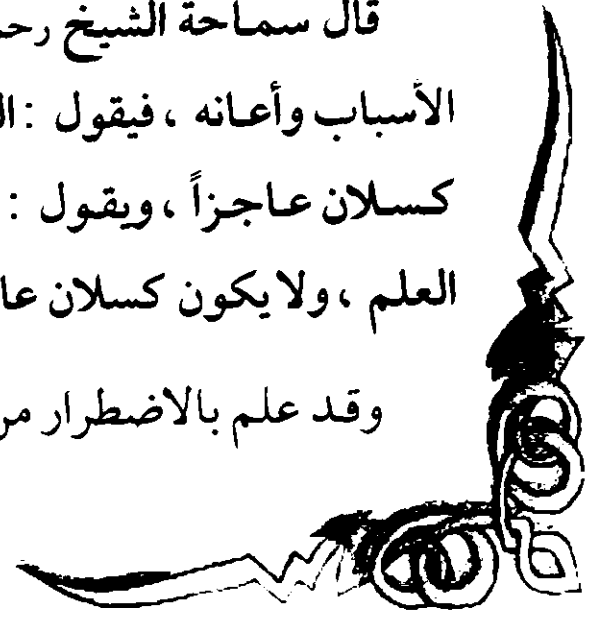 قال سماحة الشيخ
الأسباب وأعانه ، فيقول :
كسلان عاجزاً ، ويقول :
العلم ، ولا يكون كسلان
وقد علم بالاضطرار